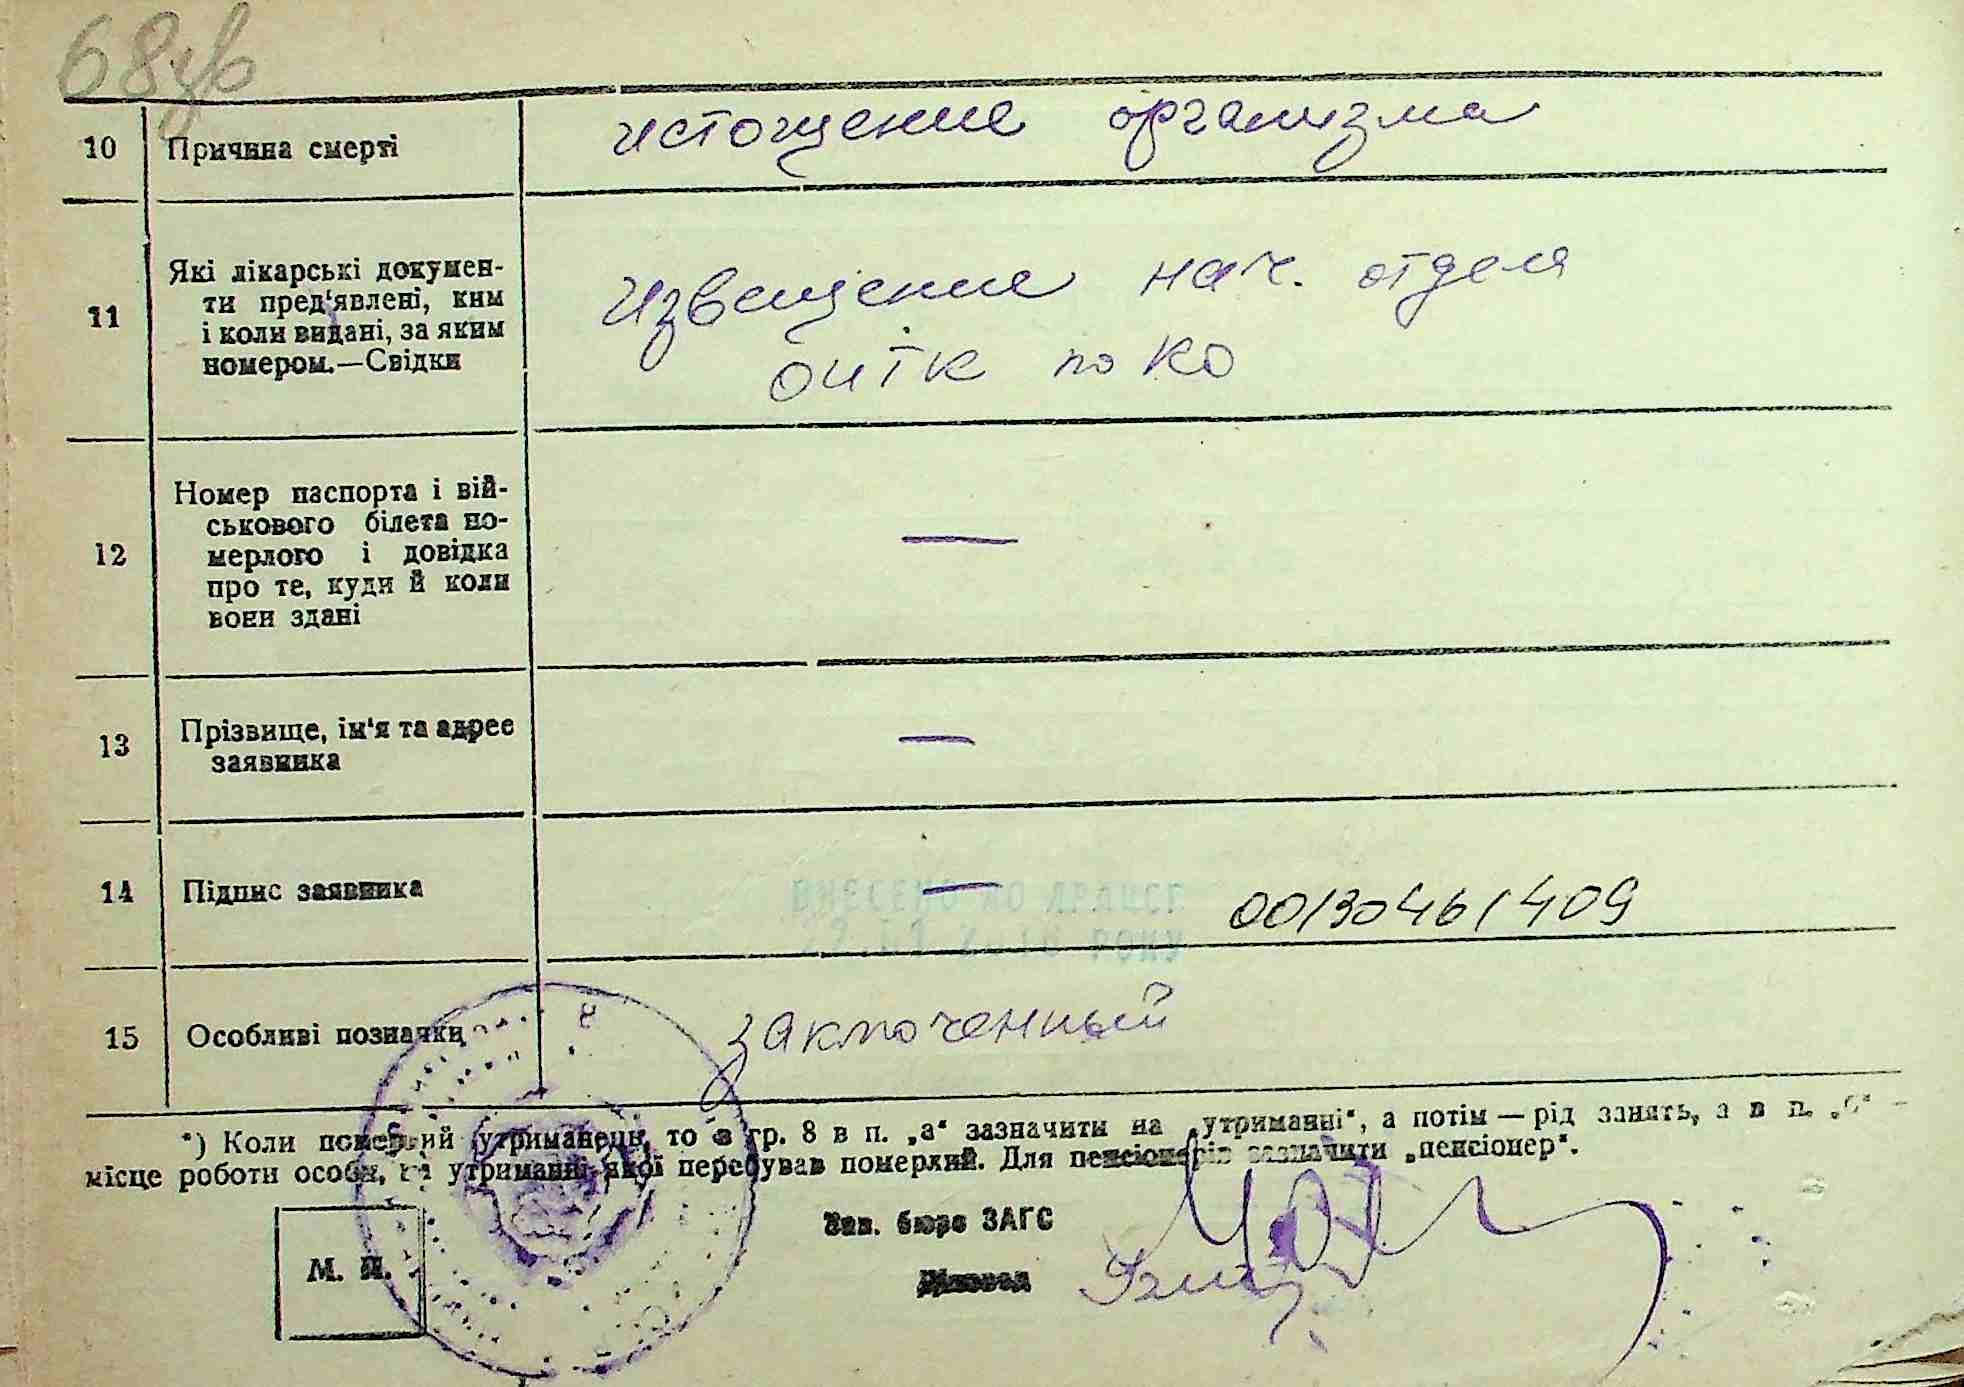 68зв
10 Причина смерті истощение организма
11 Які лікарські докумен-
ти пред'явлені, ким
і коли видані, за яким
номером.—Свідки
извещение нач. отдела
ОИТК по КО
12 Номер паспорта і вій-
ськового білета по-
мерлого і довідка
про те, куди й коли
вони здані
—
13 Прізвище, ім'я та адрес
заявника
—
14 Підпис заявника —
ВНЕСЕНО ДО ДРАЦСГ
РОКУ
00130461409
15 Особливі позначки заключенный
*) Коли померлий утриманець, то в гр. 8 в п. „а“ зазначити на „утриманні“, а потім — рід занять, а в п. „б“ —
місце роботи особи, на утриманні якої перебував померлий. Для пенсіонерів зазначити „пенсіонер“.
М. П.
Зав. бюро ЗАГС
Діловод